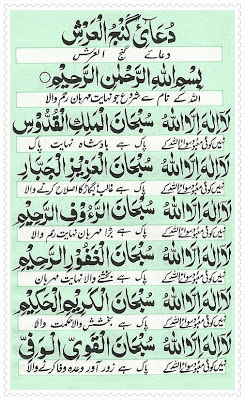 دُعَائے گَنْجُ الْعَرْشْ
دعائے گنج العرش
بِسْمِ اللهِ الرَّحْمٰنِ الرَّحِيْمِ
اللہ کے نام سے شروع جو نہایت مہربان رحم والا
لَا اِلٰهَ اِلَّا اللهُ سُبْحَانَ الْمَلِكِ الْقُدُّوْسِ
نہیں کوئی معبود سوائے اللہ کے پاک ہے بادشاہ نہایت پاک
لَا اِلٰهَ اِلَّا اللهُ سُبْحَانَ الْعَزِيْزِ الْجَبَّارِ
نہیں کوئی معبود سوائے اللہ کے پاک ہے غالب بگاڑ کا اصلاح کرنے والا
لَا اِلٰهَ اِلَّا اللهُ سُبْحَانَ الرَّءُوْفِ الرَّحِيْمِ
نہیں کوئی معبود سوائے اللہ کے پاک ہے بڑا مہربان نہایت رحم والا
لَا اِلٰهَ اِلَّا اللهُ سُبْحَانَ الْغَفُوْرِ الرَّحِيْمِ
نہیں کوئی معبود سوائے اللہ کے پاک ہے بخشنے والا نہایت مہربان
لَا اِلٰهَ اِلَّا اللهُ سُبْحَانَ الْكَرِيْمِ الْحَكِيْمِ
نہیں کوئی معبود سوائے اللہ کے پاک ہے بخشش والا حکمت والا
لَا اِلٰهَ اِلَّا اللهُ سُبْحَانَ الْقَوِيِّ الْوَفِيِّ
نہیں کوئی معبود سوائے اللہ کے پاک ہے زور آور وعدہ وفا کرنے والا